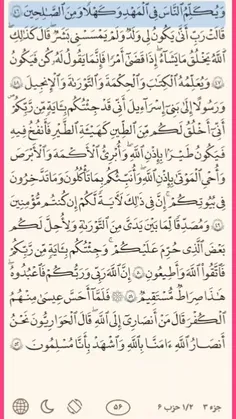 وَيُكَلِّمُ ٱلنَّاسَ فِي ٱلْمَهْدِ وَكَهْلًا وَمِنَ ٱلصَّٰلِحِينَ ٤٦
قَالَتْ رَبِّ أَنَّىٰ يَكُونُ لِي وَلَدٌ وَلَمْ يَمْسَسْنِي بَشَرٌ قَالَ كَذَٰلِكِ
ٱللَّهُ يَخْلُقُ مَا يَشَآءُ إِذَا قَضَىٰٓ أَمْرًا فَإِنَّمَا يَقُولُ لَهُۥ كُن فَيَكُونُ
٤٧ وَيُعَلِّمُهُ ٱلْكِتَٰبَ وَٱلْحِكْمَةَ وَٱلتَّوْرَىٰةَ وَٱلْإِنجِيلَ ٤٨
وَرَسُولًا إِلَىٰ بَنِيٓ إِسْرَٰٓءِيلَ أَنِّي قَدْ جِئْتُكُم بِـَٔايَةٍ مِّن رَّبِّكُمْ
أَنِّيٓ أَخْلُقُ لَكُم مِّنَ ٱلطِّينِ كَهَيْـَٔةِ ٱلطَّيْرِ فَأَنفُخُ فِيهِ
فَيَكُونُ طَيْرًۢا بِإِذْنِ ٱللَّهِ وَأُبْرِئُ ٱلْأَكْمَهَ وَٱلْأَبْرَصَ
وَأُحْيِ ٱلْمَوْتَىٰ بِإِذْنِ ٱللَّهِ وَأُنَبِّئُكُم بِمَا تَأْكُلُونَ وَمَا تَدَّخِرُونَ
فِي بُيُوتِكُمْ إِنَّ فِي ذَٰلِكَ لَـَٔايَةً لَّكُمْ إِن كُنتُم مُّؤْمِنِينَ
٤٩ وَمُصَدِّقًا لِّمَا بَيْنَ يَدَيَّ مِنَ ٱلتَّوْرَىٰةِ وَلِأُحِلَّ لَكُم
بَعْضَ ٱلَّذِي حُرِّمَ عَلَيْكُمْ وَجِئْتُكُم بِـَٔايَةٍ مِّن رَّبِّكُمْ
فَٱتَّقُوا۟ ٱللَّهَ وَأَطِيعُونِ ٥٠ إِنَّ ٱللَّهَ رَبِّي وَرَبُّكُمْ فَٱعْبُدُوهُ
هَٰذَا صِرَٰطٌ مُّسْتَقِيمٌ ٥١ فَلَمَّآ أَحَسَّ عِيسَىٰ مِنْهُمُ
ٱلْكُفْرَ قَالَ مَنْ أَنصَارِيٓ إِلَى ٱللَّهِ قَالَ ٱلْحَوَارِيُّونَ نَحْنُ
أَنصَارُ ٱللَّهِ ءَامَنَّا بِٱللَّهِ وَٱشْهَدْ بِأَنَّا مُسْلِمُونَ ٥٢
جزء ۳ ۱/۲ حزب ۶ ۵۶